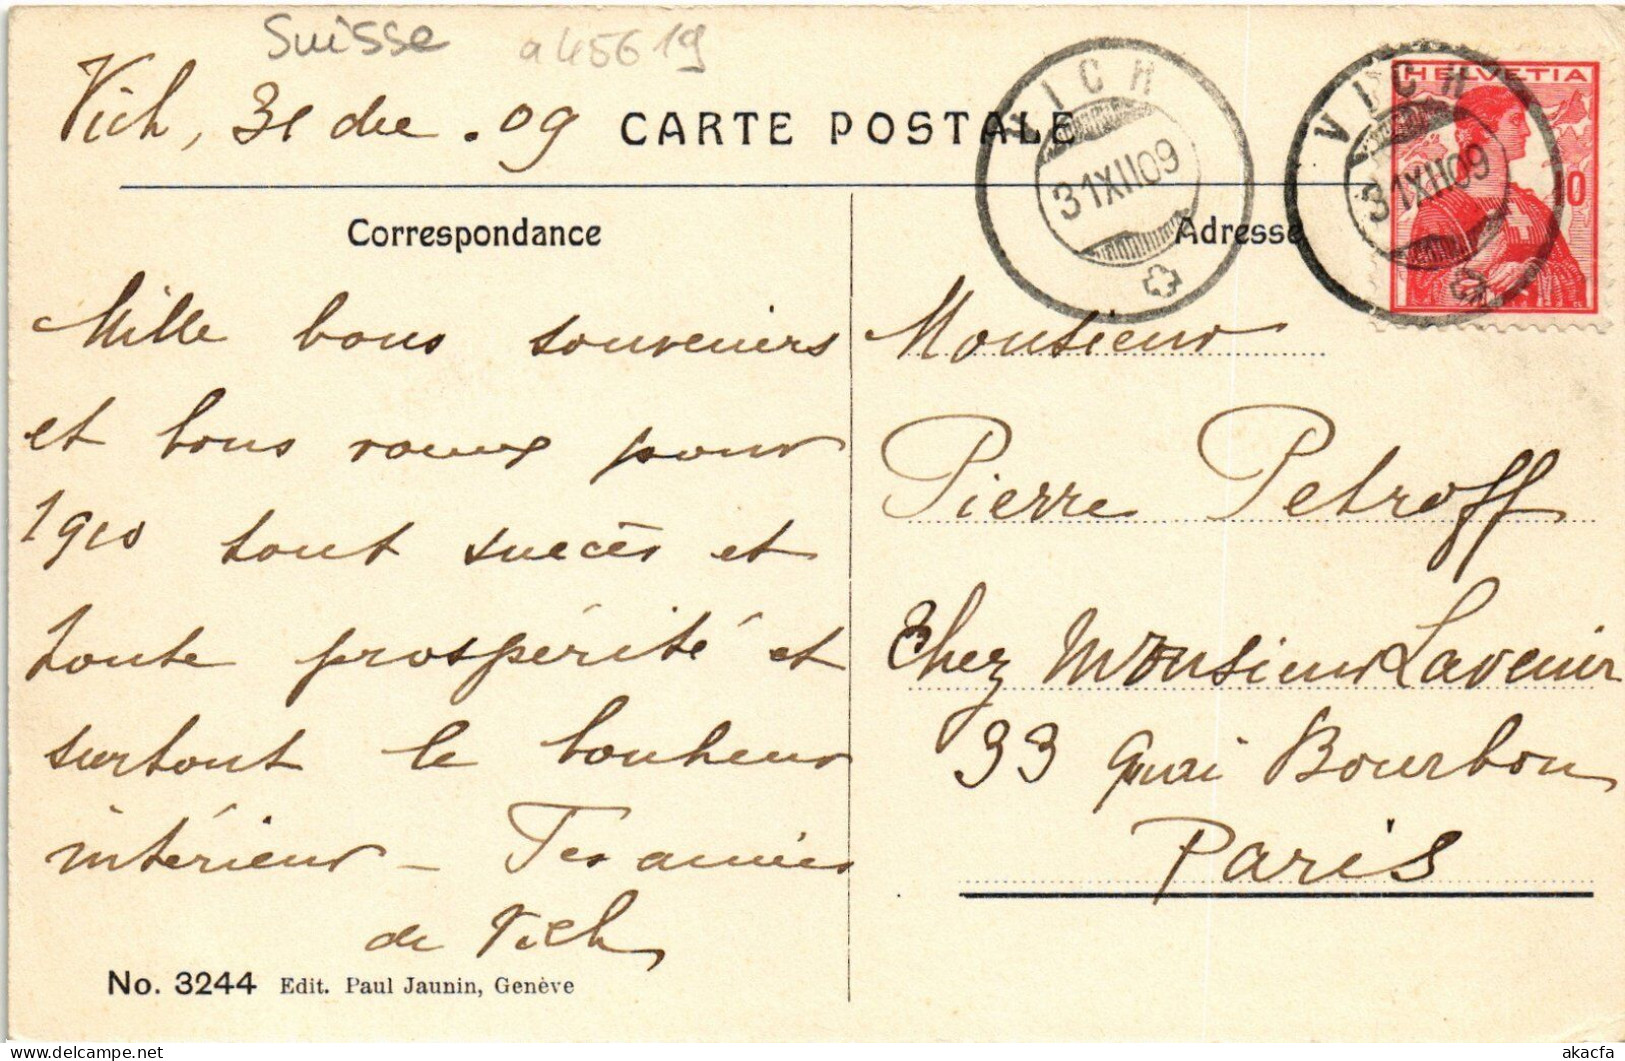 Suisse a45619
Vich, 31 dec. 09
CARTE POSTALE
VICH
31XII09
VICH
31XII09
HELVETIA
10
Correspondance
Adresse
Mille bons souvenirs
et bons voeux pour
1910 tout succès et
toute prospérité et
surtout le bonheur
intérieur — Tes amies
de Vich
Monsieur
Pierre Petroff
Chez Monsieur Lavenir
33 Quai Bourbon
Paris
No. 3244 Edit. Paul Jaunin, Genève
akacfa